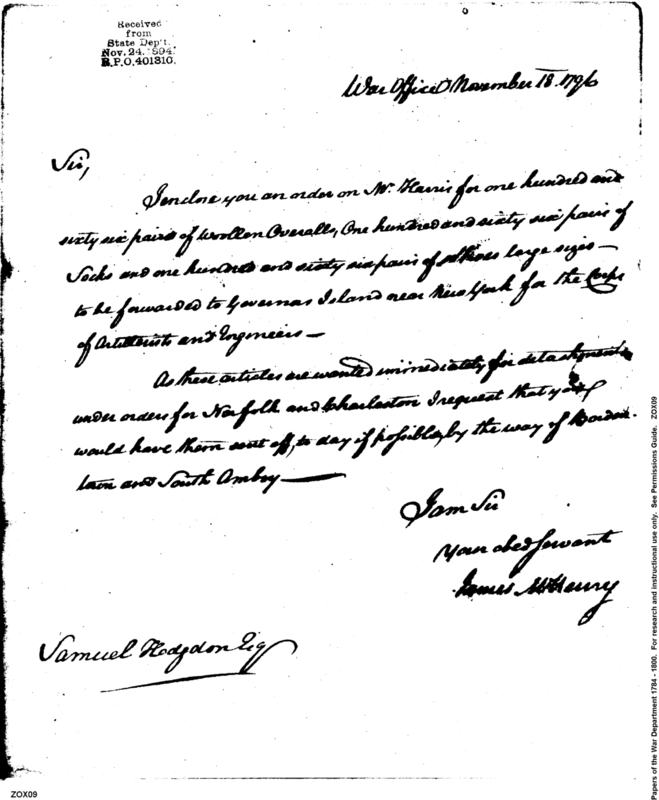 Received
from
State Dep't.
Nov. 24. '94.
R.P.O. 401310.
War Office November 18. 1796
Sir,
I enclose you an order on Mr. Harris for one hundred and
sixty six pairs of Woollen Overalls, One hundred and sixty six pairs of
Socks and one hundred and sixty six pairs of shoes large sizes —
to be forwarded to Governors Island near New York for the Corps
of Artillerists and Engineers —
As these articles are wanted immediately for detachments
under orders for Norfolk and Charleston I request that you
would have them sent off, to day if possible, by the way of Borden
town and South Amboy —
I am Sir
Your obed servant
James McHenry
Samuel Hodgdon Esq
ZOX09
Papers of the War Department 1784 - 1800. For research and instructional use only. See Permissions Guide. ZOX09